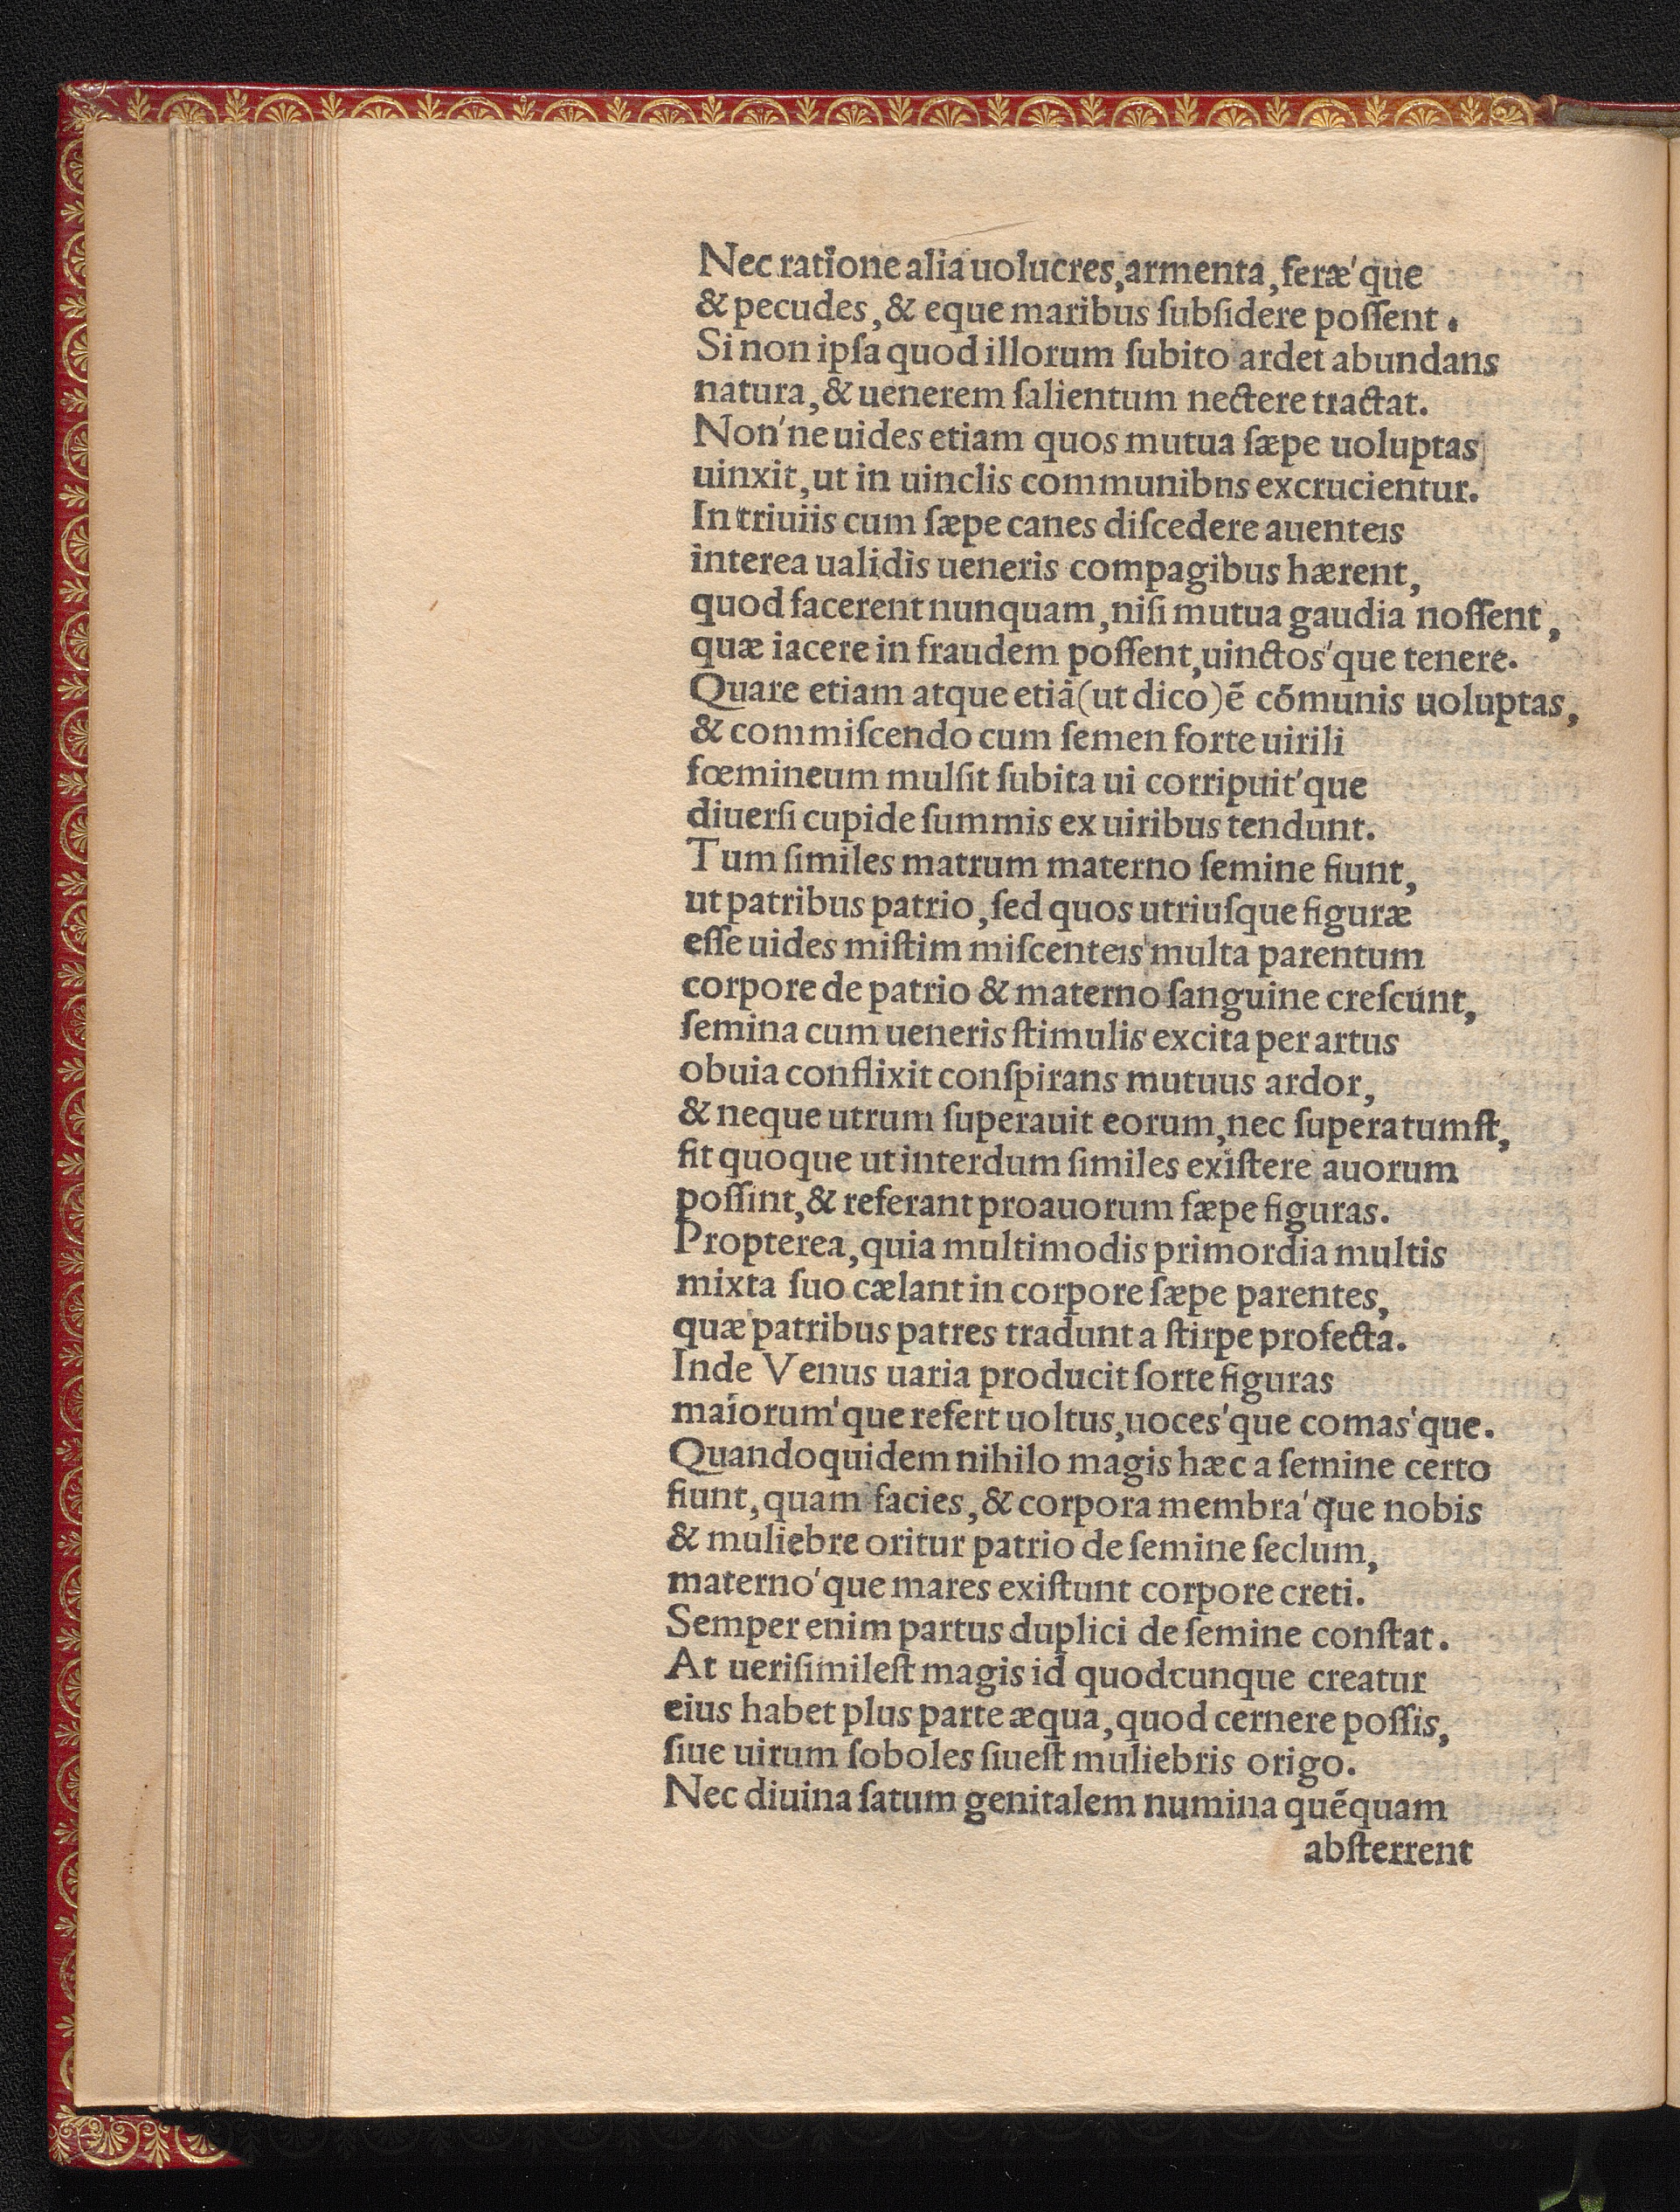 Nec ratione alia uolucres, armenta, feræ'que
& pecudes, & eque maribus ſubſidere poſſent.
Si non ipſa quod illorum ſubito ardet abundans
natura, & uenerem ſalientum nectere tractat.
Non'ne uides etiam quos mutua ſæpe uoluptas
uinxit, ut in uinclis communibns excrucientur.
In triuiis cum ſæpe canes diſcedere auenteıs
interea ualidis ueneris compagibus hærent,
quod facerent nunquam, niſi mutua gaudia noſſent,
quæ iacere in fraudem poſſent, uinctos'que tenere.
Quare etiam atque etiā (ut dico) ē cōmunis uoluptas,
& commiſcendo cum ſemen forte uirili
fœmineum mulſit ſubita ui corripuit'que
diuerſi cupide ſummis ex uiribus tendunt.
Tum ſimiles matrum materno ſemine fiunt,
ut patribus patrio, ſed quos utriuſque figuræ
eſſe uides miſtim miſcenteıs multa parentum
corpore de patrio & materno ſanguine creſcunt,
ſemina cum ueneris ſtimulis excita per artus
obuia conflixit conſpirans mutuus ardor,
& neque utrum ſuperauit eorum, nec ſuperatumſt,
fit quoque ut interdum ſimiles exiſtere auorum
poſſint, & referant proauorum ſæpe figuras.
Propterea, quia multimodis primordia multis
mixta ſuo cælant in corpore ſæpe parentes,
quæ patribus patres tradunt a ſtirpe profecta.
Inde Venus uaria producit ſorte figuras
maiorum'que refert uoltus, uoces'que comas'que.
Quandoquidem nihilo magis hæc a ſemine certo
fiunt, quam facies, & corpora membra'que nobis
& muliebre oritur patrio de ſemine ſeclum,
materno'que mares exiſtunt corpore creti.
Semper enim partus duplici de ſemine conſtat.
At ueriſimileſt magis id quodcunque creatur
eius habet plus parte æqua, quod cernere poſſis,
ſiue uirum ſoboles ſiueſt muliebris origo.
Nec diuina ſatum genitalem numina quēquam
abſterrent